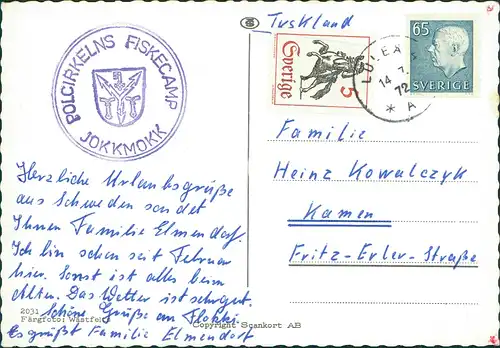 Tuskland
POLCIRKELNS FISKECAMP
JOKKMOKK
Sverige
5
LULEÅ
14.7.
72
* A
65
SVERIGE
Familie
Heinz Kowalczyk
Kamen
Fritz-Erler-Straße
Herzliche Urlaubsgrüße
aus Schweden sendet
Ihnen Familie Elmendorf.
Ich bin schon seit Februar
hier. Sonst ist alles beim
Alten. Das Wetter ist sehr gut.
2031 Schöne Grüße an
Färgfoto: Wästfelt
Copyright Scankort AB
Es grüßt Familie Elmendorf